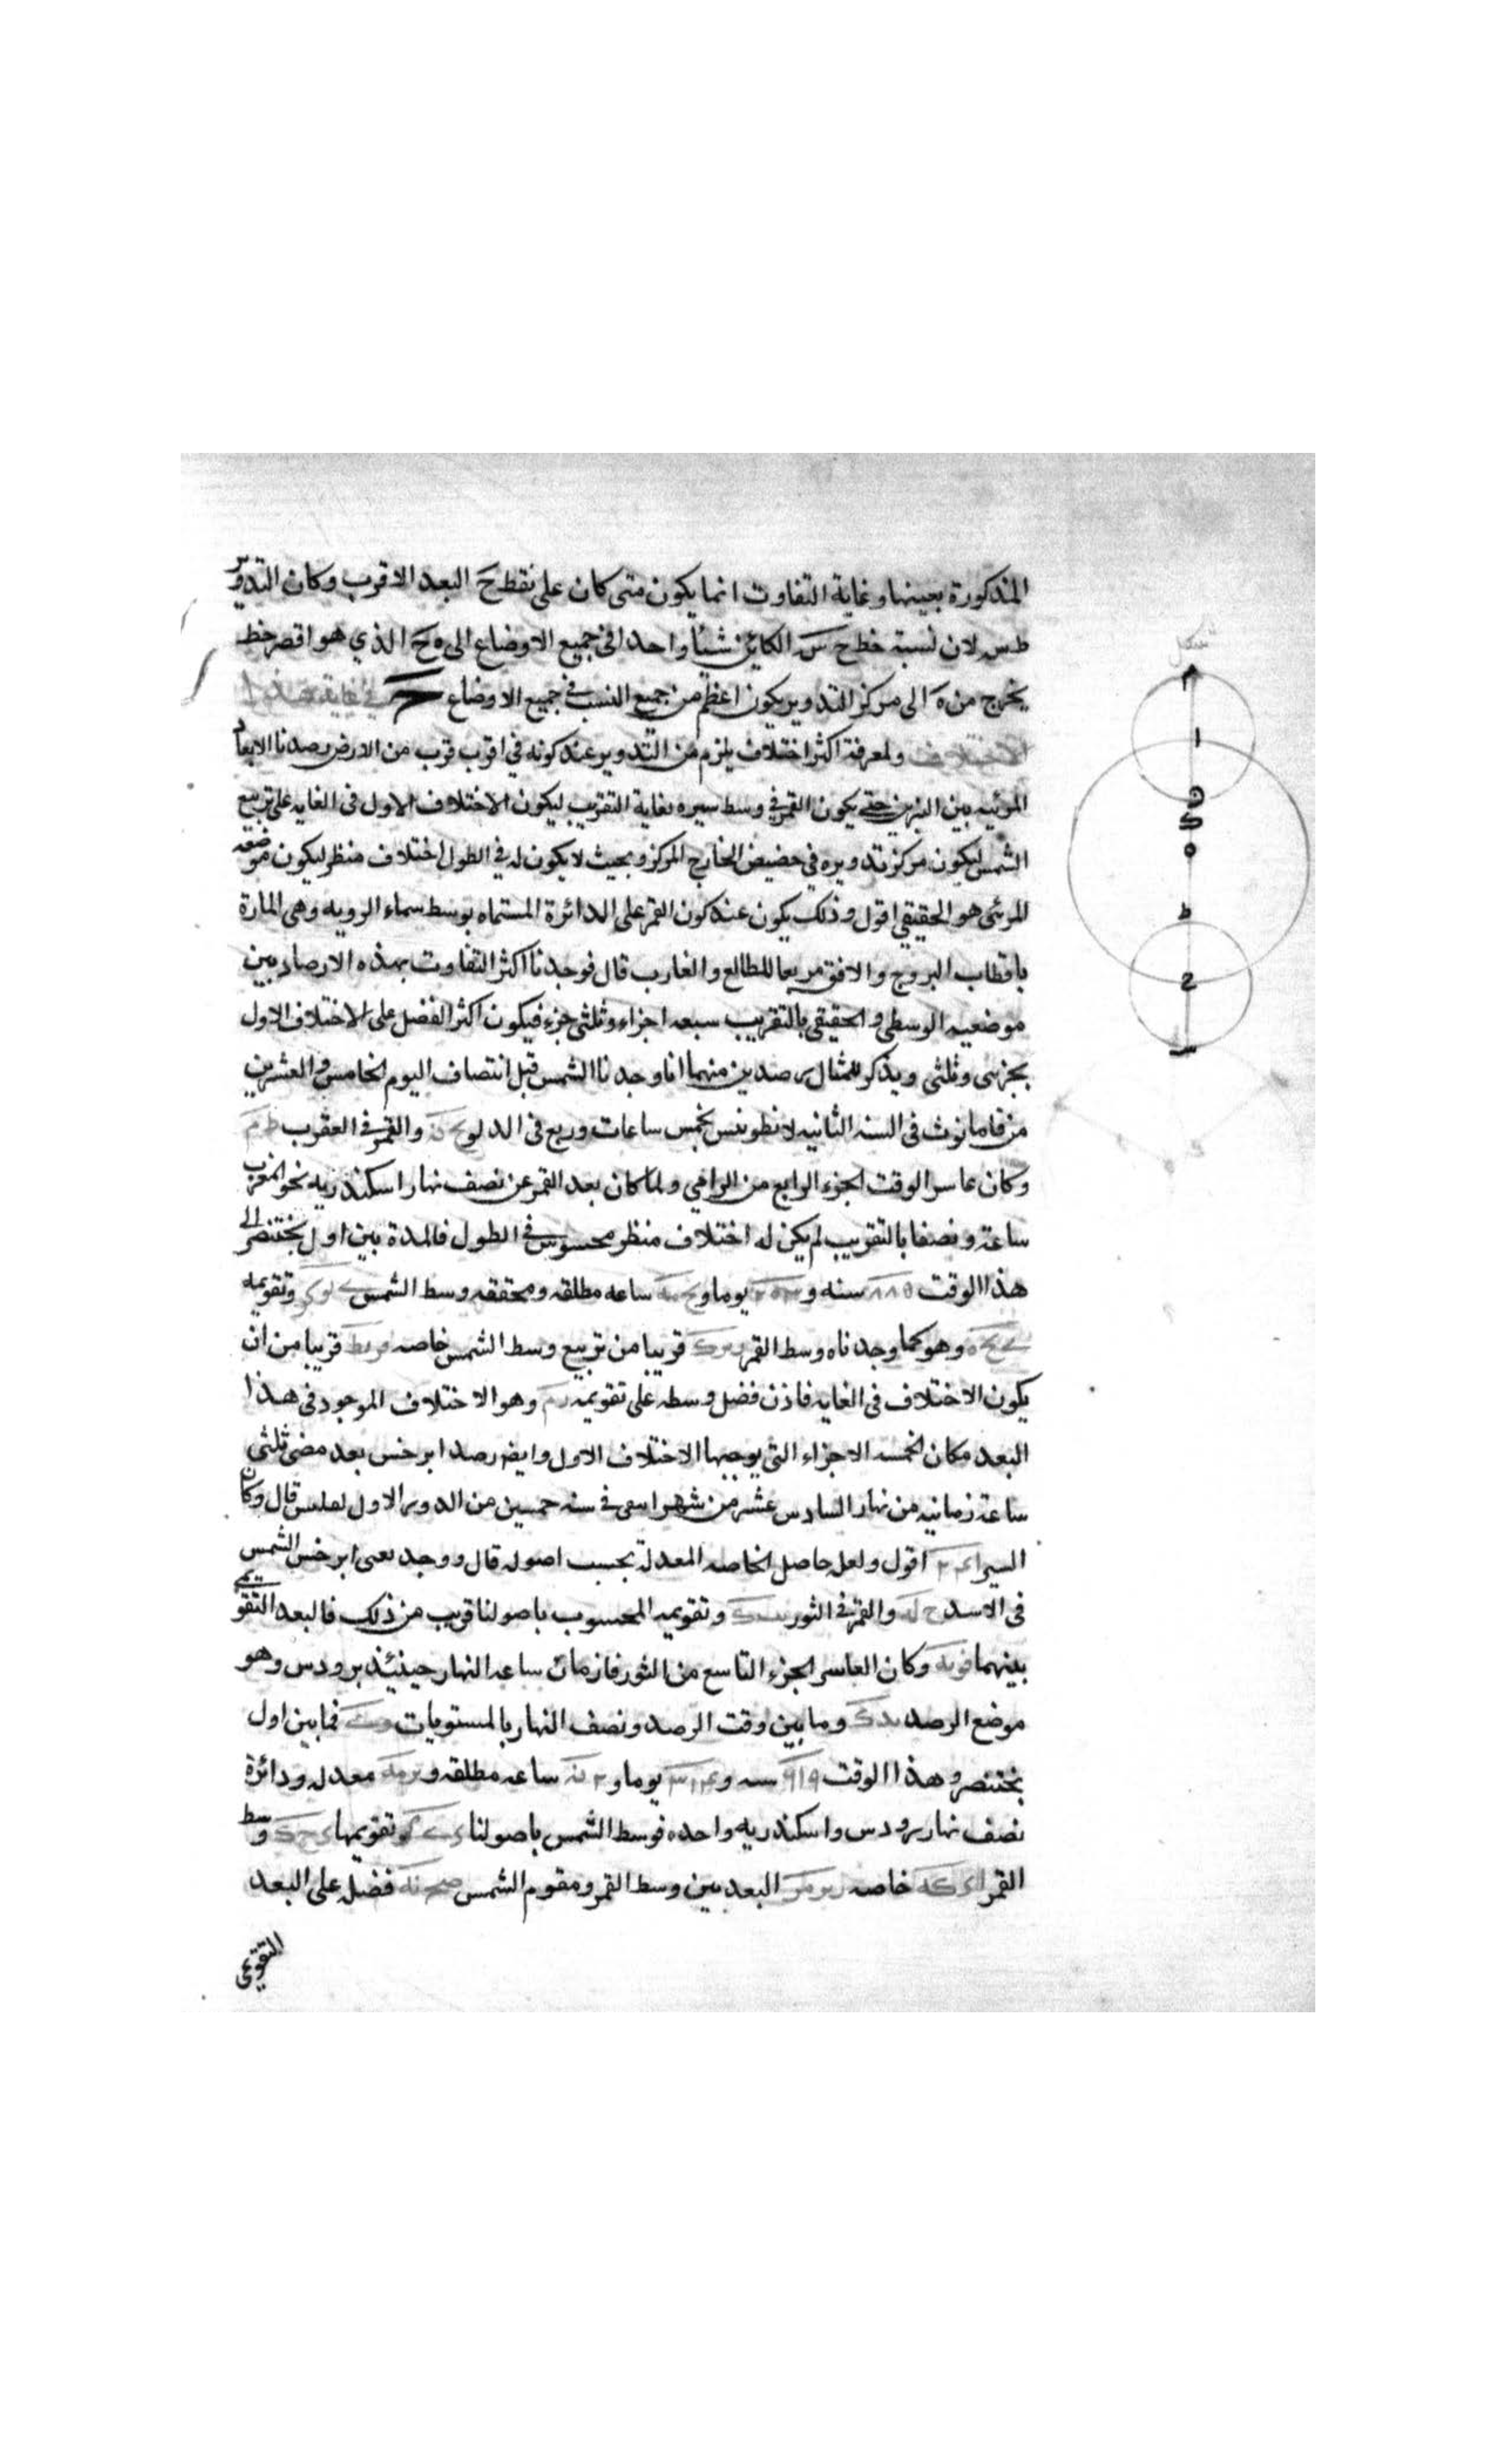 المذكورة بعينها وغاية التفاوت انما يكون متى كان على نقطة ح البعد الاقرب وكان التدوير
ط س لان نسبة خط ح س الكائن شيئا واحدا في جميع الاوضاع الى ه ح الذي هو اقصر خط
يخرج من ه الى مركز التدوير يكون اعظم من جميع النسب في جميع الاوضاع
ولمعرفة اكثر اختلاف يلزم من التدوير عند كونه في اقرب قرب من الارض رصدنا الابعاد
المرئيه بين النيرين حتى يكون القمر في وسط سيره بغاية التقريب ليكون الاختلاف الاول فى الغايه على تربيع
الشمس ليكون مركز تدويره في حضيض الخارج المركز وبحيث لا يكون له في الطول اختلاف منظر ليكون موضعه
المرئى هو الحقيقي اقول وذلك يكون عند كون القمر على الدائرة المسماه بوسط سماء الرويه وهى المارة
باقطاب البروج والافق مربعا للطالع والغارب قال فوجدنا اكثر التفاوت بهذه الارصاد بين
موضعيه الوسطى والحقيقى بالتقريب سبعه اجزاء وثلثى جزء فيكون اكثر الفضل على الاختلاف الاول
بجزئى وثلثى ويذكر للمثال رصدين منهما انا وجدنا الشمس قبل انتصاف اليوم الخامس والعشرين
من فامانوث فى السنه الثانيه لانطونينس بخمس ساعات وربع فى الدلو والقمر فى العقرب
وكان عاسر الوقت الجزء الرابع من الرامي ولما كان بعد القمر عن نصف نهار اسكندريه نحو المغرب
ساعة ونصفا بالتقريب لم يكن له اختلاف منظر محسوس فى الطول فالمدة بين اول بختنصر الى
هذا الوقت ٨٨٥ سنه و يوما و ساعه مطلقه ومحققه وسط الشمس وتقويمه
وهو كما وجدناه وسط القمر قريبا من تربيع وسط الشمس خاصه قريبا من ان
يكون الاختلاف فى الغايه فاذن فضل وسطه على تقويمه وهو الاختلاف الموجود فى هذا
البعد مكان الخمسه الاجزاء التى يوجبها الاختلاف الاول وايضا رصد ابرخس بعد مضى ثلثى
ساعة زمانيه من نهار السادس عشر من شهر فى سنه خمسين من الدور الاول قال وكان
السير اقول ولعل حاصل الخاصه المعدلة بحسب اصوله قال ووجد يعنى ابرخس الشمس
فى الاسد والقمر فى الثور وتقويمه المحسوب باصولنا قريب من ذلك فالبعد التقويمى
بينهما وكان العاسر الجزء التاسع من الثور فازمان ساعه النهار حينئذ برودس وهو
موضع الرصد وما بين وقت الرصد ونصف النهار بالمستويات فما بين اول
بختنصر وهذا الوقت سنه و يوما و ساعه مطلقه و معدله ودائرة
نصف نهار برودس واسكندريه واحده فوسط الشمس باصولنا تقويمها وسط
القمر خاصه البعد بين وسط القمر ومقوم الشمس فضله على البعد
التقويمى
شكل
ا
ه
ط
ح
س